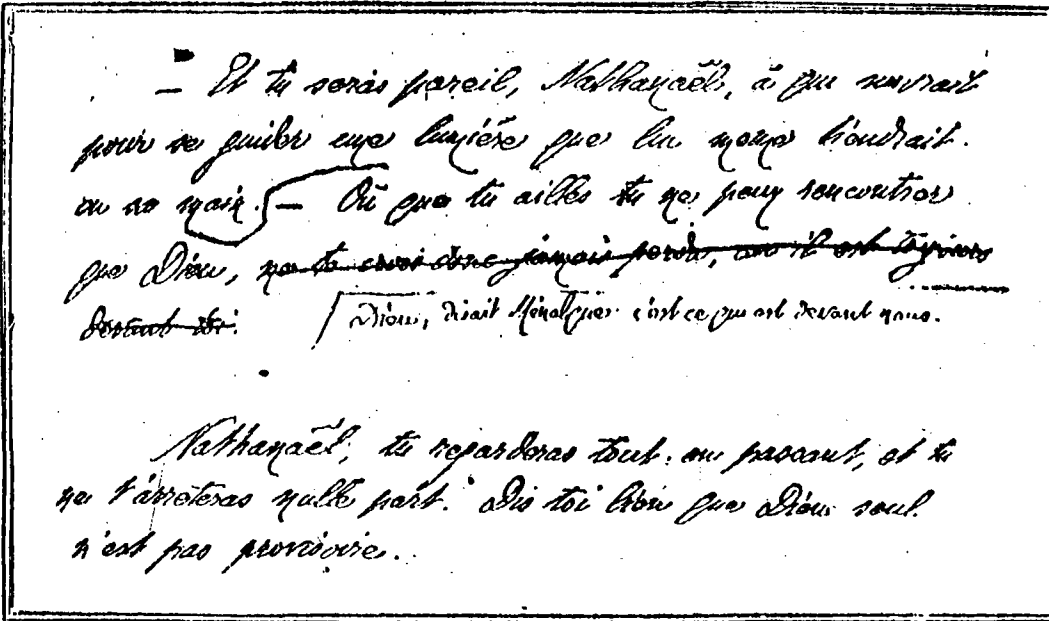 — Et tu seras pareil, Nathanaël, à qui suivrait
pour se guider une lumière que lui même tiendrait
en sa main. — Où que tu ailles tu ne peux rencontrer
que Dieu, ne te crois donc jamais perdu, car il est toujours
devant toi.
Dieu, disait Ménalque: c'est ce qui est devant nous.
Nathanaël, tu regarderas tout en passant, et tu
ne t'arrêteras nulle part. Dis toi bien que Dieu seul
n'est pas provisoire.